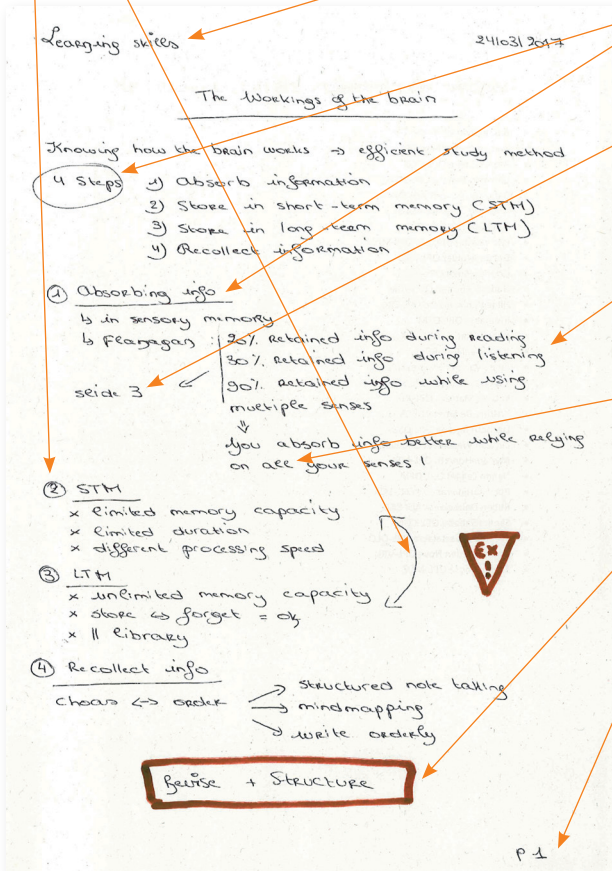 Learning skills 24/03/2017
The workings of the brain
Knowing how the brain works → efficient study method
4 Steps 1) Absorb information
2) Store in short-term memory (STM)
3) Store in long-team memory (LTM)
4) Recollect information
① Absorbing info
↳ in sensory memory
↳ Flanagan : 20% Retained info during reading
30% Retained info during listening
slide 3 ← 90% Retained info while using
multiple senses
⇓
You absorb info better while relying
on all your senses !
② STM
× limited memory capacity
× limited duration
× different processing speed
EX
!
③ LTM
× unlimited memory capacity
× store ↔ forget = ok
× || library
④ Recollect info
→ structured note taking
choas ↔ order → mindmapping
→ write orderly
Revise + Structure
p 1